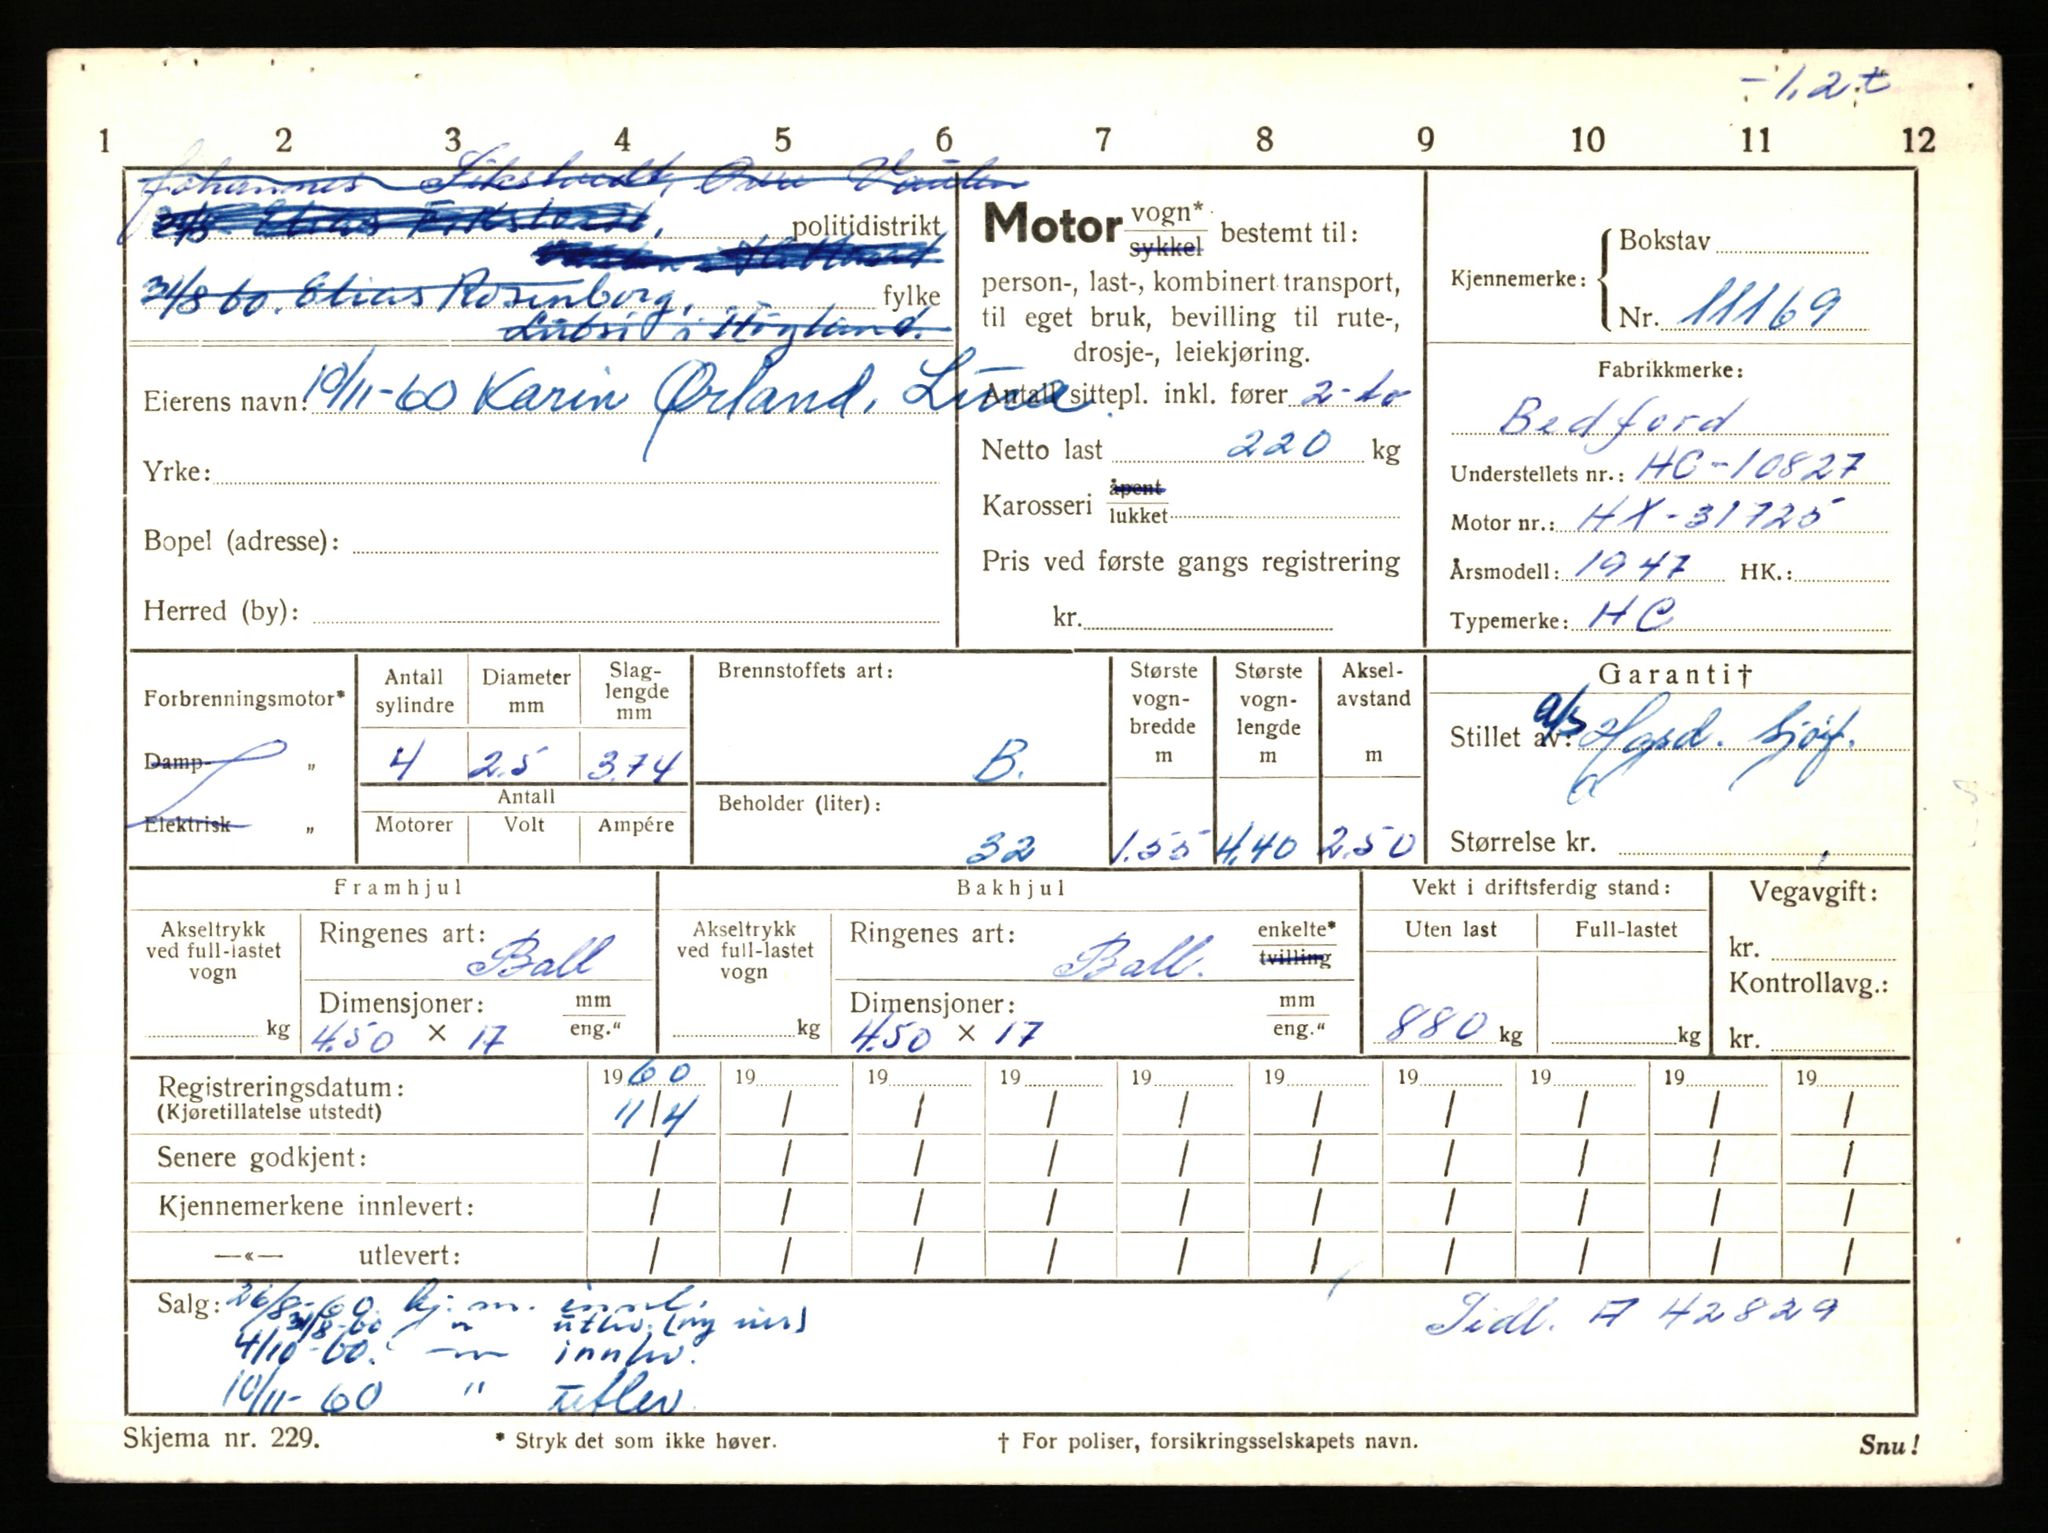 - 1,2 t
1 2 3 4 5 6 7 8 9 10 11 12
Johannes
politidistrikt
31/8 60. Elias Rosenborg,
fylke
Eierens navn: 10/11-60 Karin Ørland, Lura.
Yrke:
Bopel (adresse):
Herred (by):
Motor vogn* sykkel bestemt til:
person-, last-, kombinert transport,
til eget bruk, bevilling til rute-,
drosje-, leiekjøring.
Antall sittepl. inkl. fører 2-to
Netto last 220 kg
Karosseri åpent lukket
Pris ved første gangs registrering
kr.
Kjennemerke: Bokstav
Nr. 11169
Fabrikkmerke:
Bedford
Understellets nr.: HC-10827
Motor nr.: HX-31725
Årsmodell: 1947 HK.:
Typemerke: HC
Forbrenningsmotor*
Damp- „
Elektrisk „
Antall sylindre
Diameter mm
Slag-lengde mm
4 2.5 3.74
Antall
Motorer Volt Ampére
Brennstoffets art:
B.
Beholder (liter):
32
Største vogn-bredde m
1.55
Største vogn-lengde m
4.40
Aksel-avstand m
2.50
Garanti†
Stillet av: a/s Sjöf.
Størrelse kr.
Framhjul
Akseltrykk ved full-lastet vogn
kg
Ringenes art: Ball
Dimensjoner: mm eng."
4.50 × 17
Bakhjul
Akseltrykk ved full-lastet vogn
kg
Ringenes art: Ball. enkelte* tvilling
Dimensjoner: mm eng."
4.50 × 17
Vekt i driftsferdig stand:
Uten last Full-lastet
880 kg kg
Vegavgift:
kr.
Kontrollavg.:
kr.
Registreringsdatum: 1960 19 19 19 19 19 19 19 19 19
(Kjøretillatelse utstedt) 11/4 / / / / / / / / /
Senere godkjent: / / / / / / / / / /
Kjennemerkene innlevert: / / / / / / / / / /
—«— utlevert: / / / / / / / / / /
Salg: 26/8-60. kj.m. innl.
31/8-60 " utlev. (ny
4/10-60. -"- innlev.
10/11-60 " utlev.
Tidl. A 42829
Skjema nr. 229.
* Stryk det som ikke høver.
† For poliser, forsikringsselskapets navn.
Snu!